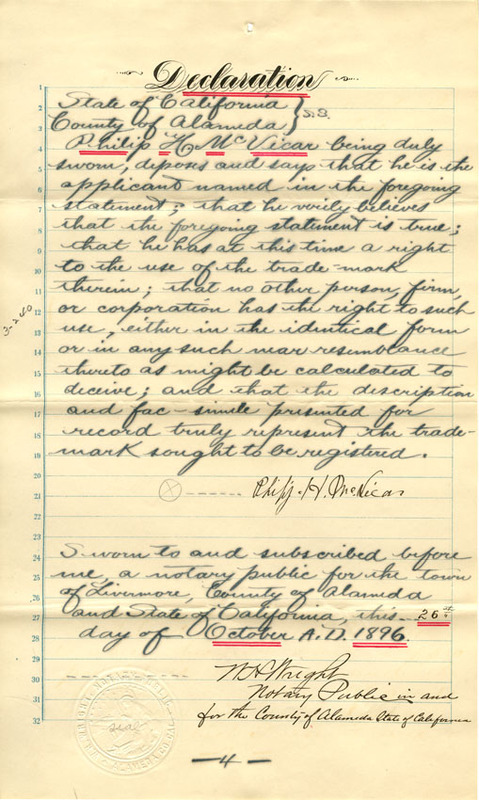 Declaration
1 State of California } S.S.
2 County of Alameda
3
4 Philip H McVicar being duly
5 sworn, deposes and says that he is the
6 applicant named in the foregoing
7 statement; that he verily believes
8 that the foregoing statement is true;
9 that he has at this time a right
10 to the use of the trade-mark
11 therein; that no other person, firm,
12 or corporation has the right to such
13 use, either in the identical form
14 or in any such near resemblance
15 thereto as might be calculated to
16 deceive; and that the description
17 and fac-simile presented for
18 record truly represent the trade-
19 mark sought to be registered.
20
21 Philip H. McVicar
22
23
24 Sworn to and subscribed before
25 me, a notary public for the town
26 of Livermore, County of Alameda
27 and State of California, this 26th
28 day of October A.D. 1896.
29
30 W H Wright
31 Notary Public in and
32 for the County of Alameda State of California
3-280
Seal
ALAMEDA CO. CAL.
-4-